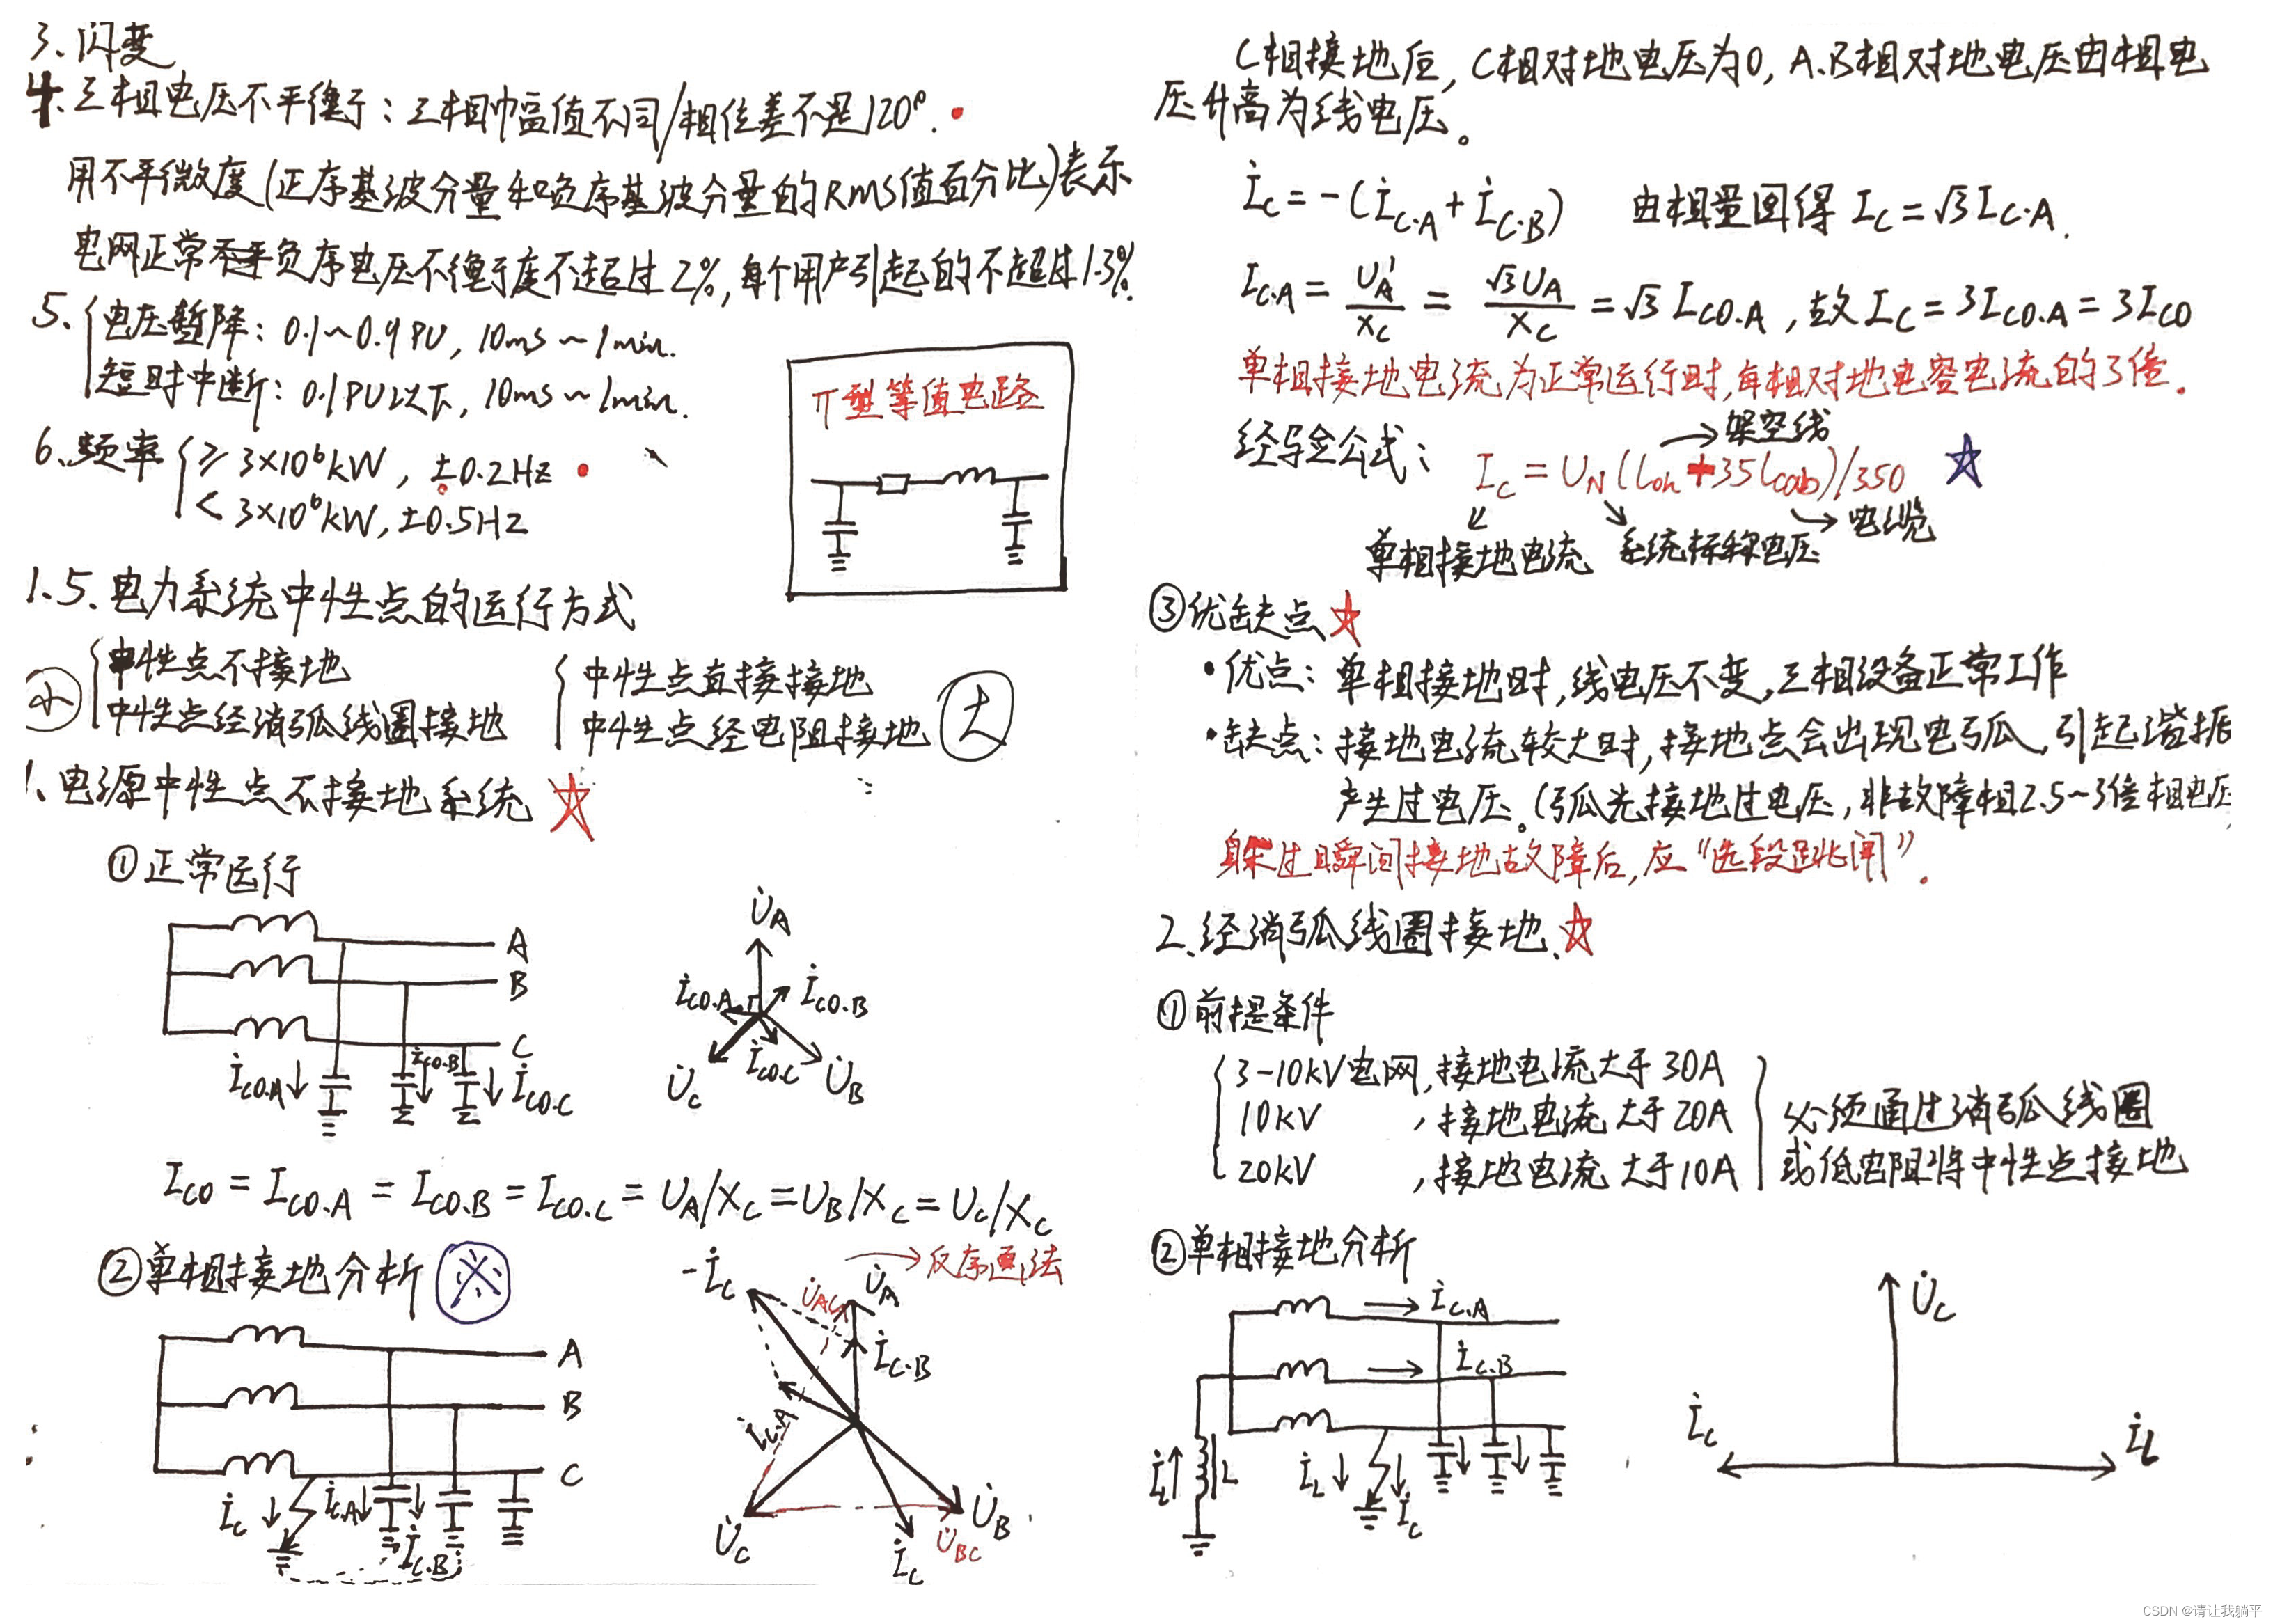 3、闪变
4.三相电压不平衡：三相幅值不同/相位差不是120°.
用不平衡度(正序基波分量和负序基波分量的RMS值百分比)表示
电网正常负序电压不平衡度不超过2%,每个用户引起的不超过1.3%.
5.
电压暂降：0.1~0.9PU, 10ms~1min.
短时中断：0.1PU以下, 10ms~1min.
π型等值电路
6、频率
≥3×10⁶kW, ±0.2Hz
<3×10⁶kW, ±0.5Hz
1.5.电力系统中性点的运行方式
小
中性点不接地
中性点经消弧线圈接地
中性点直接接地
中性点经电阻接地
大
1、电源中性点不接地系统
①正常运行
A
B
C
İco.A
İco.B
İco.C
U̇A
İco.A
İco.B
İco.C
U̇C
U̇B
Ico = Ico.A = Ico.B = Ico.C = UA/Xc = UB/Xc = Uc/Xc
②单相接地分析
※
A
B
C
İc
İc.A
İc.B
-İc
U̇AC
U̇A
İc.B
İc.A
U̇C
U̇B
U̇BC
İc
C相接地后, C相对地电压为0, A.B相对地电压由相电
压升高为线电压。
İc = -(İc.A + İc.B) 由相量图得 Ic = √3Ic.A.
Ic.A = U'A/Xc = √3UA/Xc = √3 Ico.A , 故 Ic = 3Ico.A = 3Ico
单相接地电流为正常运行时,每相对地电容电流的3倍.
经验公式：
架空线
Ic = UN(loh+35lcab)/350
电缆
单相接地电流
系统标称电压
③优缺点
•优点：单相接地时,线电压不变,三相设备正常工作
•缺点：接地电流较大时,接地点会出现电弧,引起谐振
产生过电压。(弧光接地过电压,非故障相2.5~3倍相电压
躲过瞬间接地故障后,应"选段跳闸".
2.经消弧线圈接地.
①前提条件
3-10kV电网,接地电流大于30A
10kV ,接地电流大于20A
20kV ,接地电流大于10A
必须通过消弧线圈
或低电阻将中性点接地
②单相接地分析
İc.A
İc.B
İL
L
İL
İc
U̇C
İc
İL
CSDN @请让我躺平